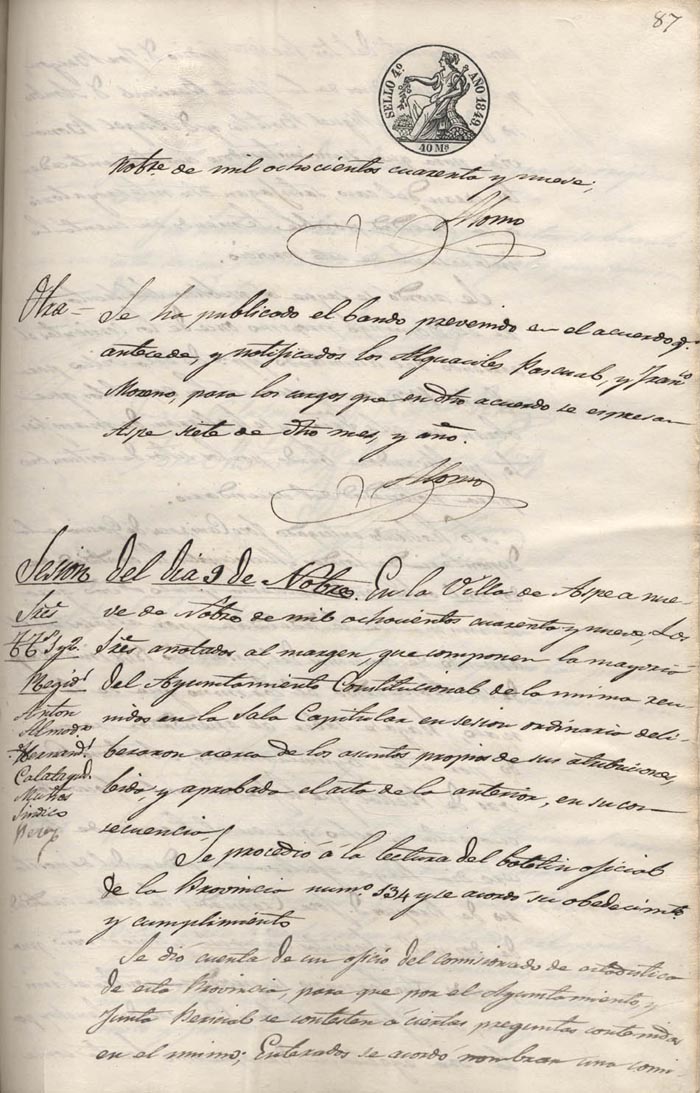 87
SELLO 4º AÑO 1849.
40 Ms
Nobre. de mil ochocientos cuarenta y nueve,
Otra = Se ha publicado el bando prevenido en el acuerdo q.
antecede, y notificados los Alguaciles Pascual, y Franco
Moreno, para los cargos que en dho acuerdo se espresan
Aspe siete de dho mes, y año.
Sesion del dia 9 de Nobre. En la Villa de Aspe a nue-
ve de Nobre de mil ochocientos cuarenta y nueve, Los
Sres anotados al margen, que componen la mayoria
del Ayuntamiento Constitucional de la misma reu-
nidos en la Sala Capitular en sesion ordinaria deli-
beraron acerca de los asuntos propios de sus atribuciones,
leida, y aprobada el acta de la anterior, en su con-
secuencia,
Sres
TTs 1 y 2.
Regid.s
Anton
Almodr
Hernand.
Calatayud.
Síndico
Se procedió á la lectura del boletin oficial
de la Provincia numº 134 y se acordó su obedecimto.
y cumplimiento
Se dió cuenta de un oficio del comisionado de estadistica
de esta Provincia, para que por el Ayuntamiento, y
Junta Pericial se contesten a ciertas preguntas contenidas
en el mismo; Enterados se acordó nombrar una comi-